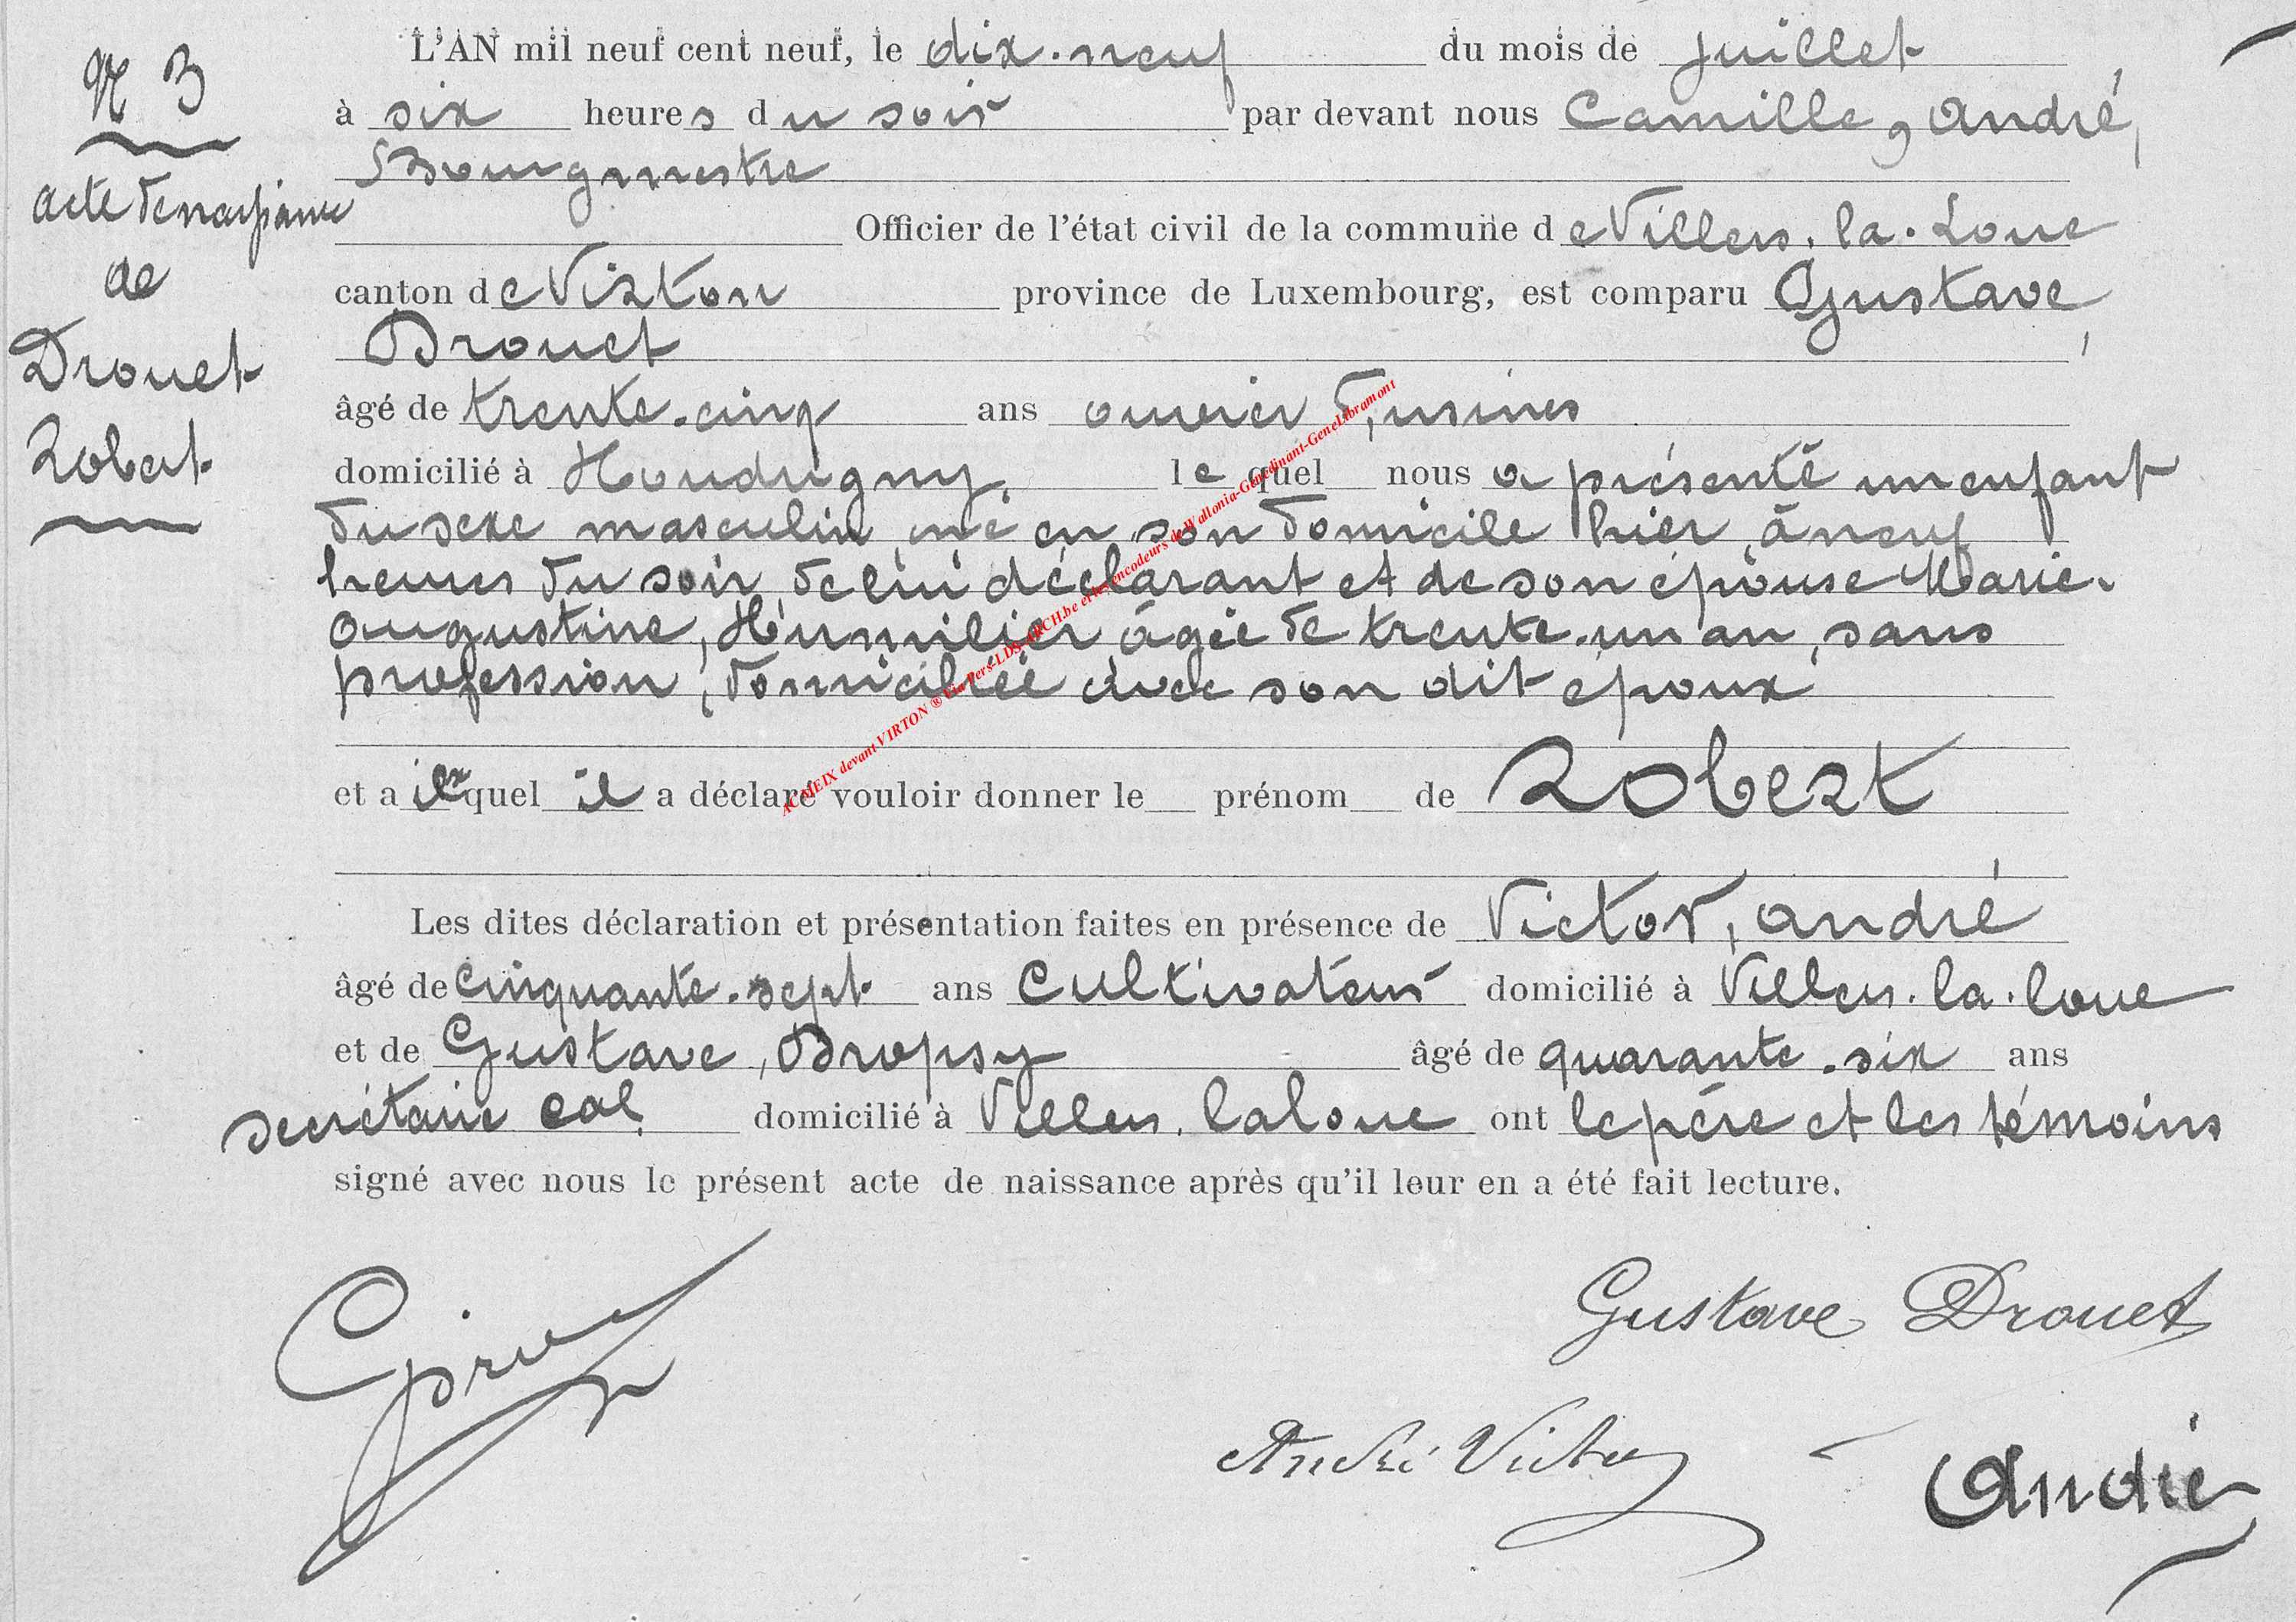 N 3
acte de naissance
de
Drouet
Robert
L'AN mil neuf cent neuf, le dix-neuf du mois de juillet
à six heures du soir par devant nous Camille, André,
Bourgmestre
Officier de l'état civil de la commune de Villers-la-Loue
canton de Virton province de Luxembourg, est comparu Gustave,
Drouet
âgé de trente-cinq ans ouvrier d'usines
domicilié à Houdrigny, lequel nous a présenté un enfant
du sexe masculin, né en son domicile hier, à neuf
heures du soir, de lui déclarant et de son épouse Marie-
Augustine, Humilier, âgée de trente-un an, sans
profession, domiciliée avec son dit époux
et auquel il a déclaré vouloir donner le prénom de Robert
Les dites déclaration et présentation faites en présence de Victor, André
âgé de cinquante-sept ans Cultivateur domicilié à Villers-la-loue
et de Gustave, Dropsy âgé de quarante-six ans
secrétaire cal. domicilié à Villers-laloue ont le père et les témoins
signé avec nous le présent acte de naissance après qu'il leur en a été fait lecture.
Gustave Drouet
André Victor
André